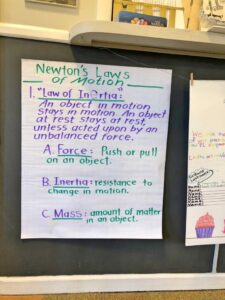 Newton's Laws
of Motion
1. "Law of Inertia:
An object in motion
stays in motion. An object
at rest stays at rest,
unless acted upon by an
unbalanced force.
A. Force: Push or pull
on an object.
B. Inertia: resistance to
change in motion.
C. Mass: amount of matter
in an object.